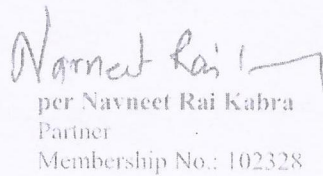 Navneet Rai
per Navneet Rai Kabra
Partner
Membership No.: 102328